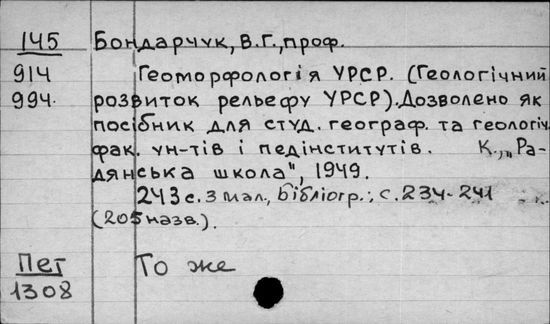 145 Бондарчук, В.Г., проф.
914 Геоморфологія УРСР. (Геологічний
994. розвиток рельефу УРСР). Дозволено як
посібник для студ. географ. та геологіч.
фак. ун-тів і педінститутів. К., „Ра-
дянська школа", 1949.
243 с. з мал., бібліогр.: с. 234-241
(205 назв.).
Пет То же
1308